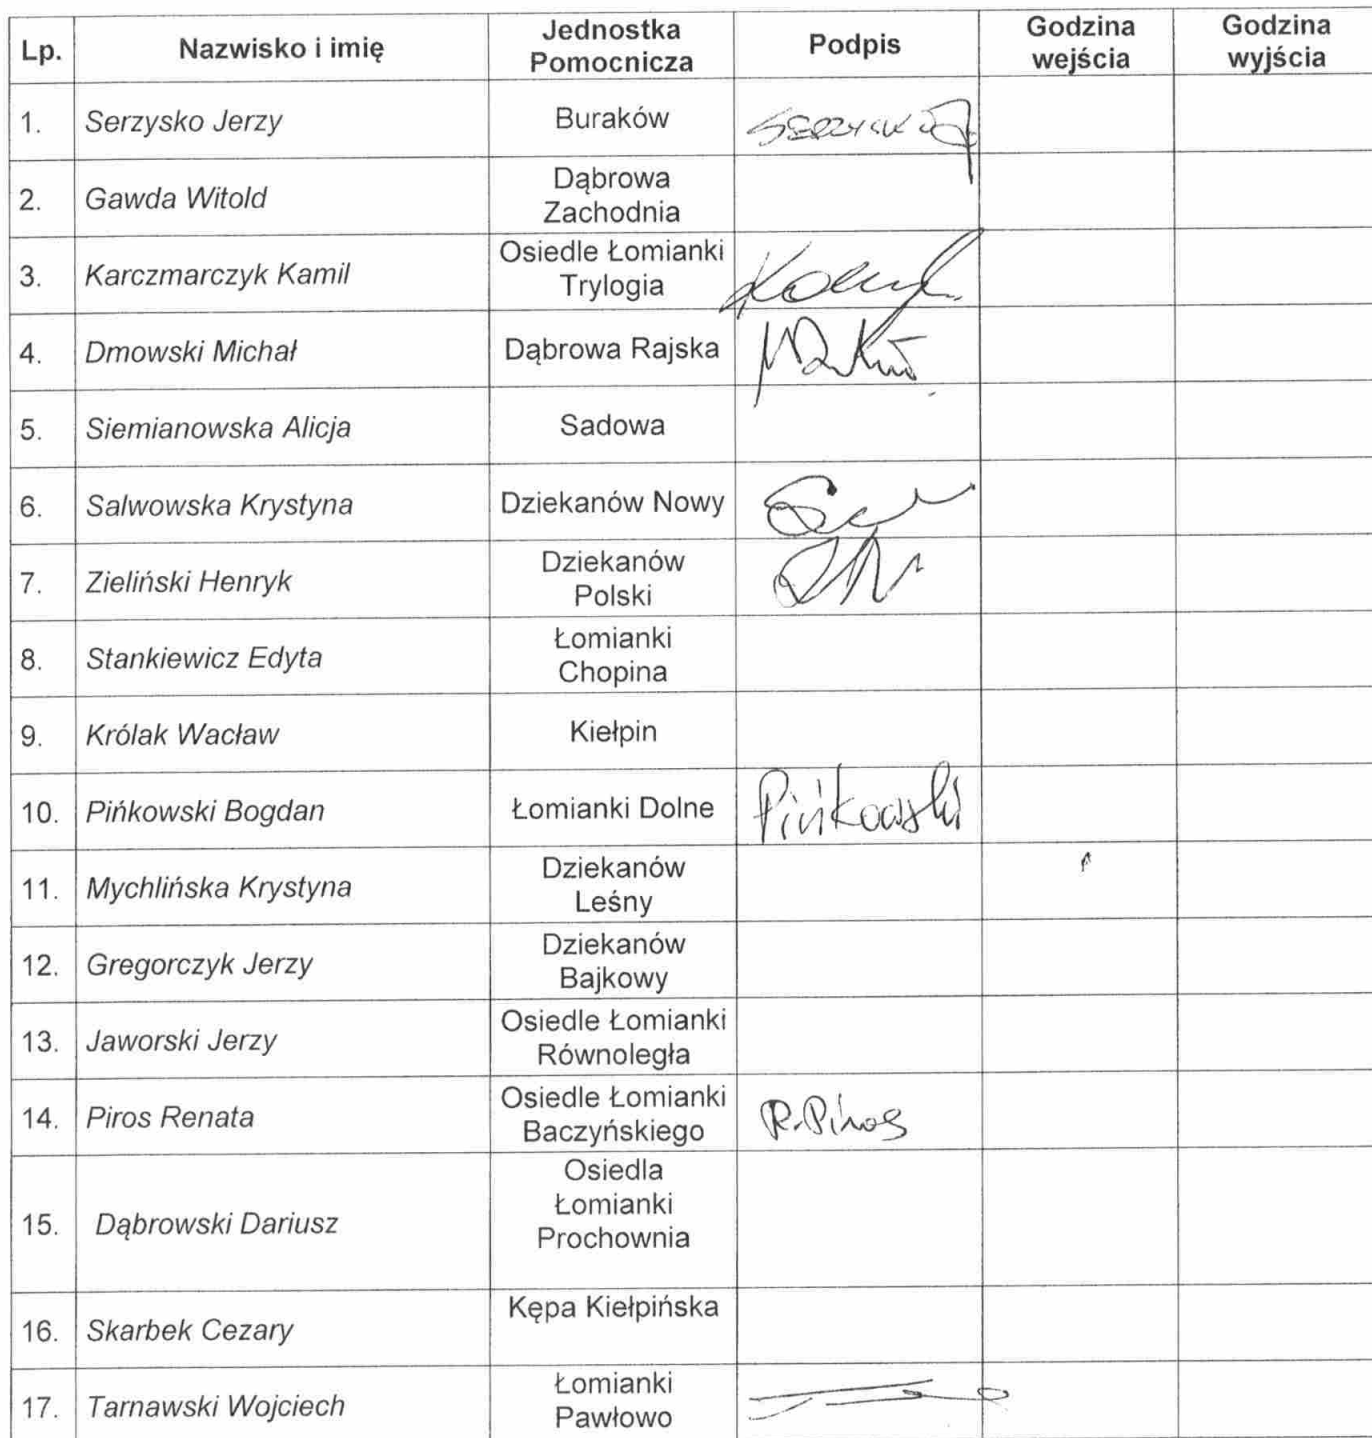 Lp. Nazwisko i imię Jednostka Pomocnicza Podpis Godzina wejścia Godzina wyjścia
1. Serzysko Jerzy Buraków
2. Gawda Witold Dąbrowa Zachodnia
3. Karczmarczyk Kamil Osiedle Łomianki Trylogia
4. Dmowski Michał Dąbrowa Rajska
5. Siemianowska Alicja Sadowa
6. Salwowska Krystyna Dziekanów Nowy
7. Zieliński Henryk Dziekanów Polski
8. Stankiewicz Edyta Łomianki Chopina
9. Królak Wacław Kiełpin
10. Pińkowski Bogdan Łomianki Dolne Pińkowski
11. Mychlińska Krystyna Dziekanów Leśny
12. Gregorczyk Jerzy Dziekanów Bajkowy
13. Jaworski Jerzy Osiedle Łomianki Równoległa
14. Piros Renata Osiedle Łomianki Baczyńskiego R.Piros
15. Dąbrowski Dariusz Osiedla Łomianki Prochownia
16. Skarbek Cezary Kępa Kiełpińska
17. Tarnawski Wojciech Łomianki Pawłowo